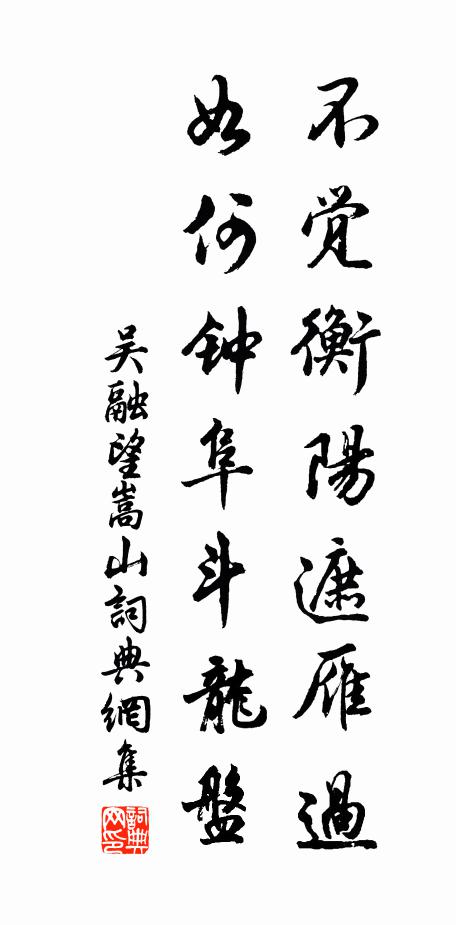 不觉衡陽遮雁過
如何钟阜斗龍盤
吴融望嵩山詞典網集
詞典网印